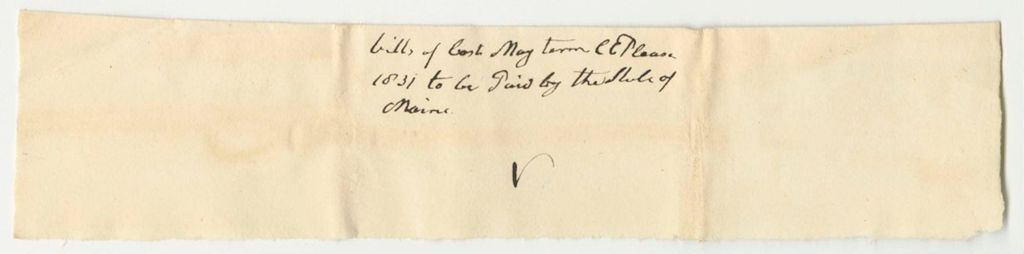 bills of Cost May term C C Pleas
1831 to be Paid by the State of
Maine.